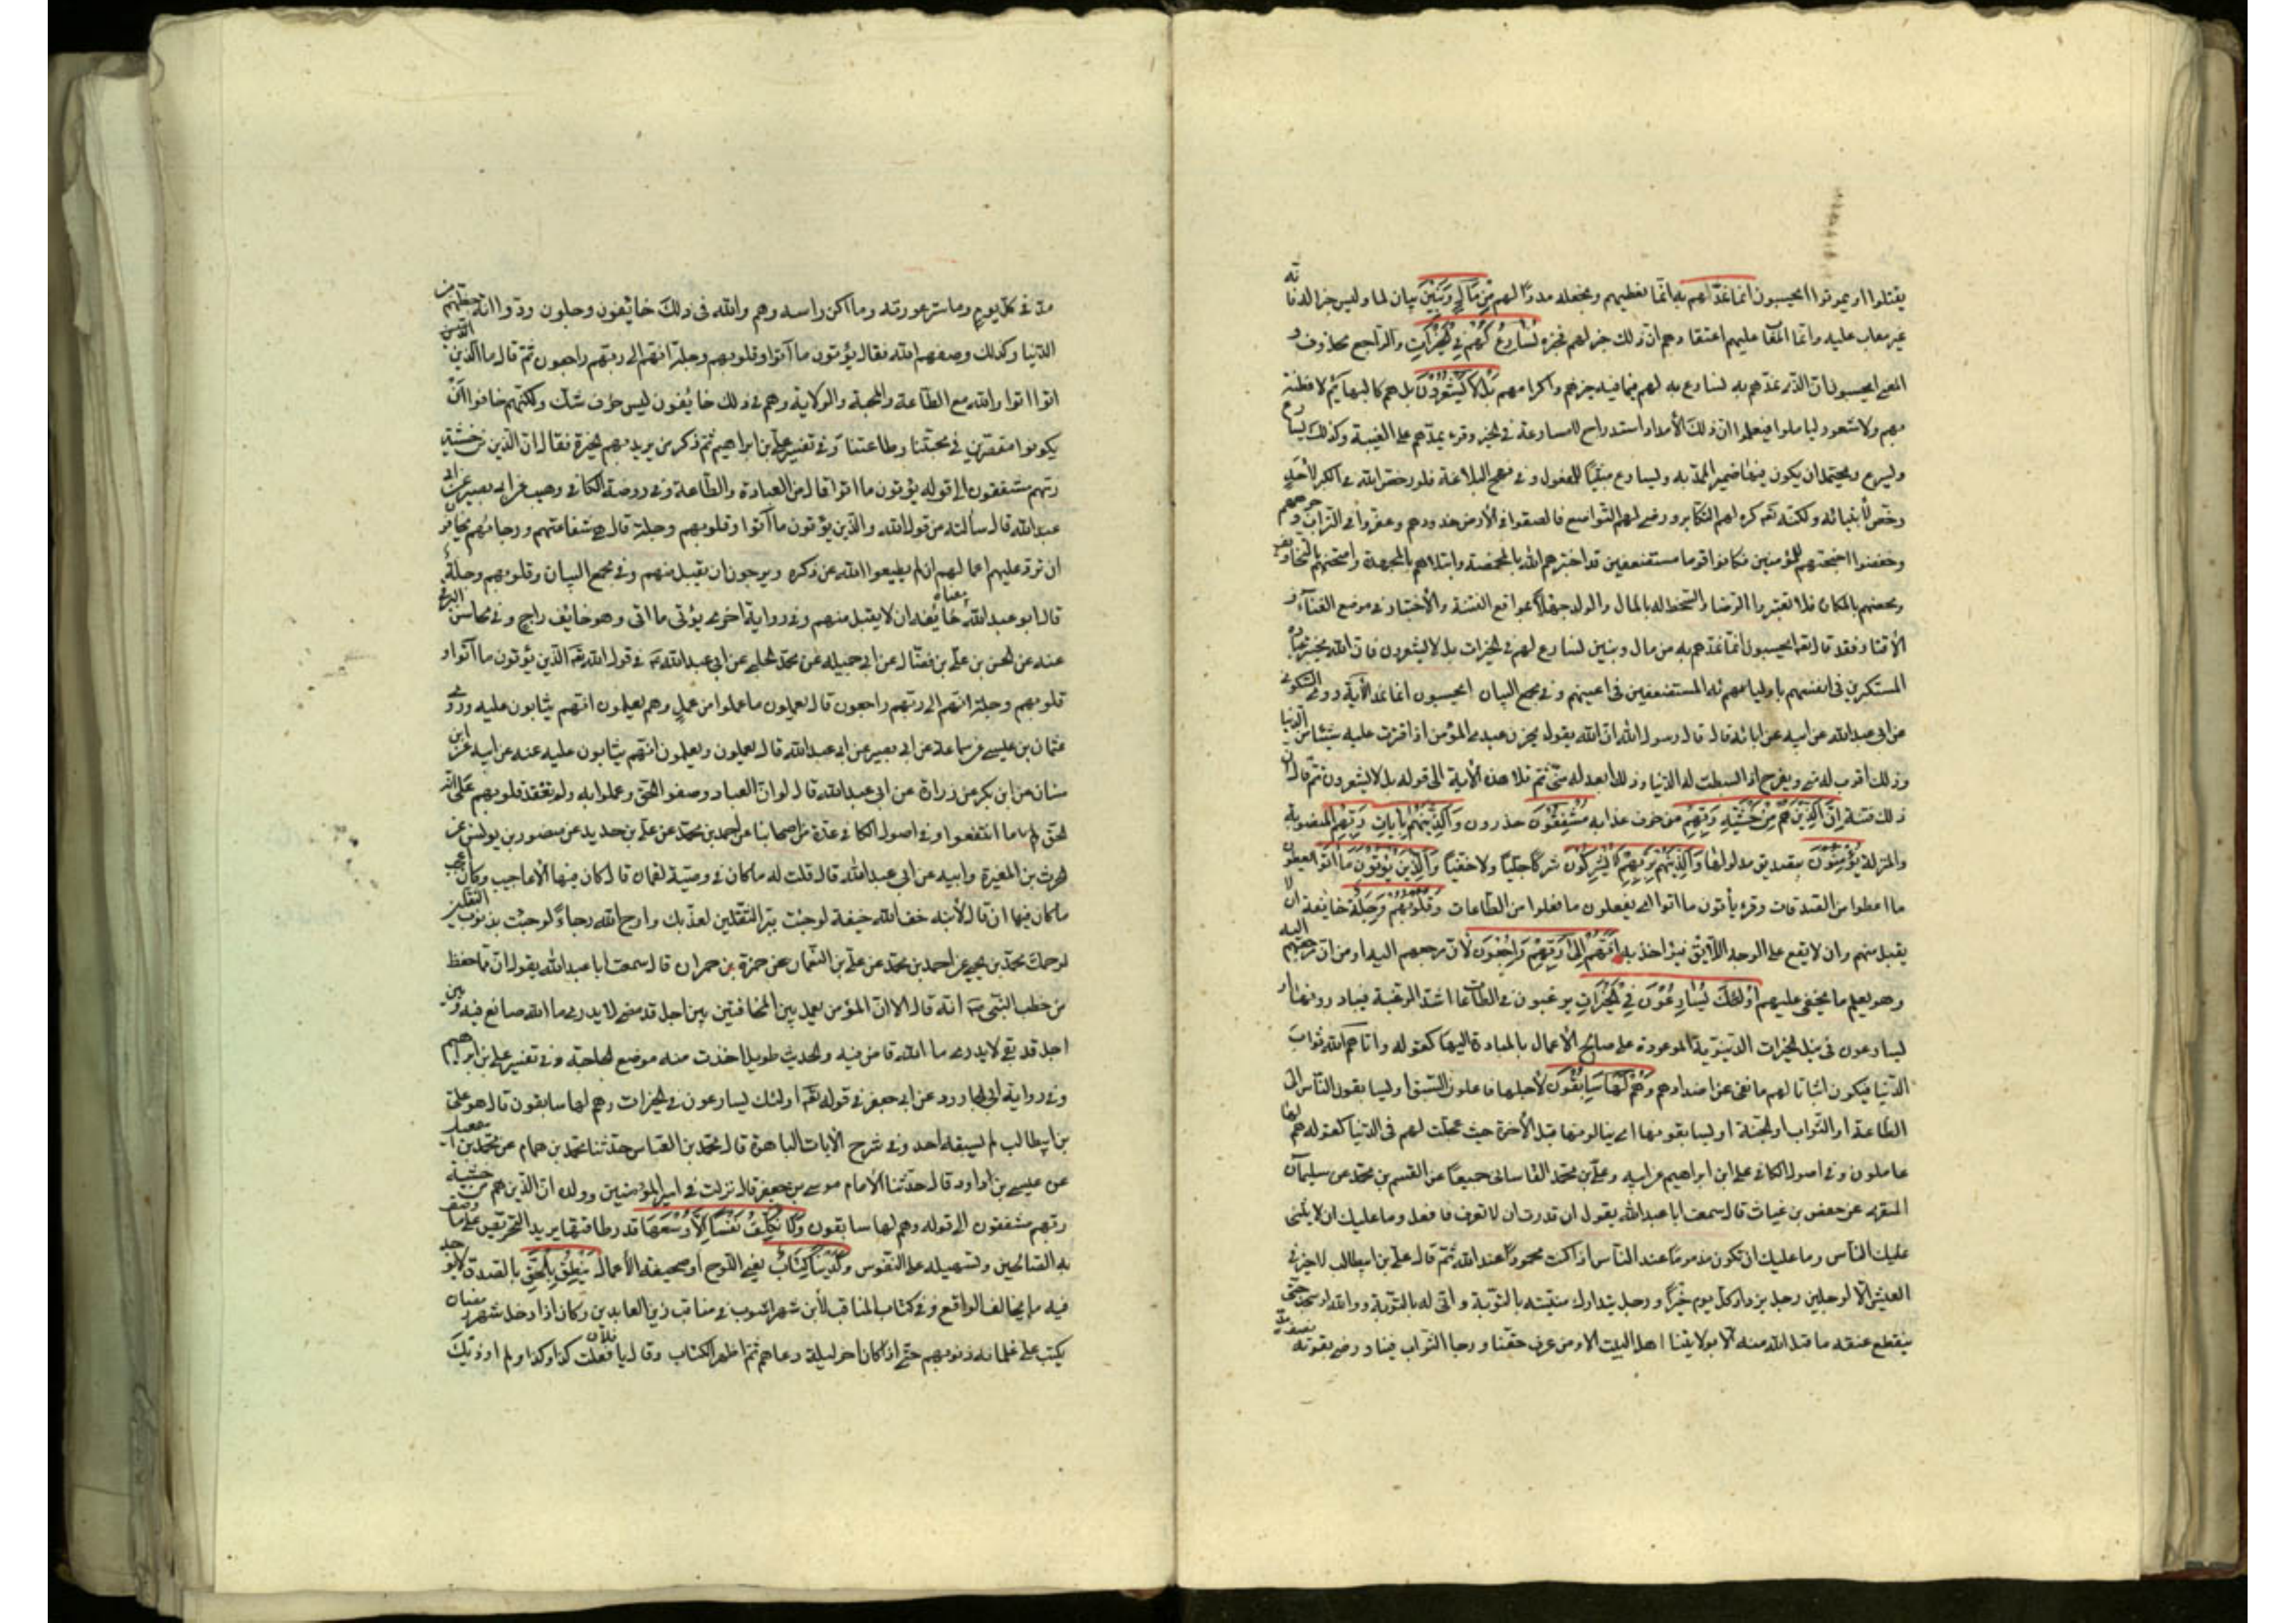 يقتلوا او يموتوا ايحسبون انما نمدهم به انما نعطيهم ونجعله مددا لهم من مال وبنين بيان لما وليس خبرا له فانه
غير معاب عليه وانما المعاب عليهم اعتقادهم ان ذلك خير لهم فخبره نسارع لهم في الخيرات والراجع محذوف و
المعنى ايحسبون ان الذي نمدهم به نسارع به لهم فيما فيه خيرهم واكرامهم بل لا يشعرون بل هم كالبهايم لا فطنة
بهم ولا شعور ليتاملوا فيعلموا ان ذلك الامداد استدراج لا مسارعة في الخير وقرئ يمدهم على الغيبة وكذلك يسارع
ويسرع ويحتمل ان يكون فيهما ضمير الممد به ويسارع مبنيا للمفعول وفي نهج البلاغة فلو رخص الله في الكبر لاحد
رخص لانبيائه ولكنه كره لهم التكابر ورضي لهم التواضع فالصقوا في الارض خدودهم وعفروا في التراب وجوههم
وخفضوا اجنحتهم للمؤمنين فكانوا قوما مستضعفين قد اختبرهم الله بالمخمصة وابتلاهم بالمجهدة وامتحنهم بالمخاوف
ومحصهم بالمكاره فلا تعتبروا الرضا والسخط بالمال والولد جهلا بمواقع الفتنة والاختبار في موضع الغناء و
الاقتار فقد قال ايحسبون انما نمدهم به من مال وبنين نسارع لهم في الخيرات بل لا يشعرون فان الله يختبر عباده
المستكبرين في انفسهم باوليائه المستضعفين في اعينهم وفي مجمع البيان ايحسبون انما نمد الاية روى السكوني
عن ابي عبد الله عن ابيه عن ابائه قال قال رسول الله ان الله يقول يحزن عبدي المؤمن اذا اقترت عليه شيئا من الدنيا
وذلك اقرب له مني ويفرح اذا بسطت له الدنيا وذلك ابعد له مني ثم تلا هذه الاية الى قوله بل لا يشعرون ثم قال ان
ذلك فتنة ان الذين هم من خشية ربهم من خوف عذابه مشفقون حذرون والذين هم بايات ربهم المنصوبة
والمنزلة يؤمنون بتصديق مدلولها والذين هم بربهم لا يشركون شركا جليا ولا خفيا والذين يؤتون ما اتوا يعطون
ما اعطوا من الصدقات وقرئ يأتون ما اتوا اي يفعلون ما فعلوا من الطاعات وقلوبهم وجلة خايفة ان لا
يقبل منهم وان لا يقع على الوجه اللايق فيؤاخذ به انهم الى ربهم راجعون لان مرجعهم اليه او من ان مرجعهم اليه
وهو يعلم ما يخفى عليهم اولئك يسارعون في الخيرات يرغبون في الطاعات اشد الرغبة فيبادرونها او
يسارعون في نيل الخيرات الدنيوية الموعودة على صالح الاعمال بالمبادرة اليها كقوله واتاهم الله ثواب
الدنيا فيكون اثباتا لهم ما نفى عن اضدادهم وهم لها سابقون لاجلها فاعلون السبق او يسابقون الناس الى
الطاعة او الثواب او الجنة او يسابقونها اي ينالونها قبل الاخرة حيث عجلت لهم في الدنيا كقوله هم لها
عاملون وفي اصول الكافي علي ابن ابراهيم عن ابيه وعلي بن محمد القاساني جميعا عن القسم بن محمد عن سليمان
المنقري عن حفص بن غياث قال سمعت ابا عبد الله يقول ان قدرت ان لا تعرف فافعل وما عليك ان لا يثني
عليك الناس وما عليك ان تكون مذموما عند الناس اذا كنت محمودا عند الله ثم قال علي بن ابي طالب لا خير في
العيش الا لرجلين رجل يزداد كل يوم خيرا ورجل يتدارك منيته بالتوبة وانى له بالتوبة ووالله لو سجد حتى
ينقطع عنقه ما قبل الله منه الا بولايتنا اهل البيت الا ومن عرف حقنا ورجا الثواب فينا ورضي بقوته نصف
مد في كل يوم وما ستر عورته وما اكن راسه وهم والله في ذلك خائفون وجلون ودوا انه حظهم من
الدنيا وكذلك وصفهم الله فقال يؤتون ما اتوا وقلوبهم وجلة انهم الى ربهم راجعون ثم قال ما الذين
اتوا اتوا والله مع الطاعة والمحبة والولاية وهم في ذلك خائفون ليس خوف شك ولكنهم خافوا ان
يكونوا مقصرين في محبتنا وطاعتنا وفي تفسير علي بن ابراهيم ثم ذكر من يريد بهم الخيرة فقال ان الذين هم من خشية
ربهم مشفقون الى قوله يؤتون ما اتوا قال من العبادة والطاعة وفي روضة الكافي وهيب عن ابي بصير عن ابي
عبد الله قال سألته عن قول الله والذين يؤتون ما اتوا وقلوبهم وجلة قال هي شفاعتهم ورجاؤهم يخافون
ان ترد عليهم اعمالهم ان لم يطيعوا الله عز ذكره ويرجون ان يقبل منهم وفي مجمع البيان وقلوبهم وجلة
قال ابو عبد الله معناه خائفة ان لا يقبل منهم وفي رواية اخرى يؤتى ما اتى وهو خايف راج وفي محاسن البرقي
عنه عن الحسن بن علي بن فضال عن ابي جميله عن محمد الحلبي عن ابي عبد الله في قول الله الذين يؤتون ما اتوا و
قلوبهم وجلة انهم الى ربهم راجعون قال يعملون ما عملوا من عمل وهم يعلمون انهم يثابون عليه وروى
عثمان بن عيسى عن سماعة عن ابي بصير عن ابي عبد الله قال يعملون ويعلمون انهم يثابون عليه عنه عن ابيه عن ابن
سنان عن ابن بكير عن زرارة عن ابي عبد الله قال لو ان العباد وصفوا الحق وعملوا به ولم تعقد قلوبهم على انه
الحق ما انتفعوا وفي اصول الكافي عدة من اصحابنا عن احمد بن محمد عن علي بن حديد عن منصور بن يونس عن
الحرث بن المغيرة وابيه عن ابي عبد الله قال قلت له ما كان في وصية لقمان قال كان فيها الاعاجيب وكان اعجب
ما كان فيها ان قال لابنه خف الله خيفة لو جئت ببر الثقلين لعذبك وارج الله رجاء لو جئت بذنوب الثقلين
لرحمك محمد بن يحيى عن احمد بن محمد عن علي بن النعمان عن حمزة بن حمران قال سمعت ابا عبد الله يقول ان مما حفظ
من خطب النبي انه قال الا ان المؤمن يعمل بين المخافتين بين اجل قد مضى لا يدري ما الله صانع فيه وبين
اجل قد بقي لا يدري ما الله قاض فيه والحديث طويل اخذت منه موضع الحاجة وفي تفسير علي بن ابراهيم
وفي رواية ابي الجارود عن ابي جعفر في قوله اولئك يسارعون في الخيرات وهم لها سابقون قال هو علي
بن ابي طالب لم يسبقه احد وفي شرح الايات الباهرة قال محمد بن العباس حدثنا محمد بن همام عن محمد بن اسمعيل
عن عيسى بن داود قال حدثنا الامام موسى بن جعفر قال نزلت في امير المؤمنين وولده ان الذين هم من خشية
ربهم مشفقون الى قوله وهم لها سابقون ولا نكلف نفسا الا وسعها قدر طاقتها يريد التحريض على ما وصف
به الصالحين وتسهيله على النفوس ولدينا كتاب يعني اللوح او صحيفة الاعمال ينطق بالحق بالصدق لا يوجد
فيه ما يخالف الواقع وفي كتاب المناقب لابن شهر اشوب في مناقب زين العابدين وكان اذا دخل شهر رمضان
يكتب على غلمانه ذنوبهم حتى اذا كان اخر ليلة دعاهم ثم اظهر الكتاب وقال يا فلان فعلت كذا وكذا ولم اوذيك